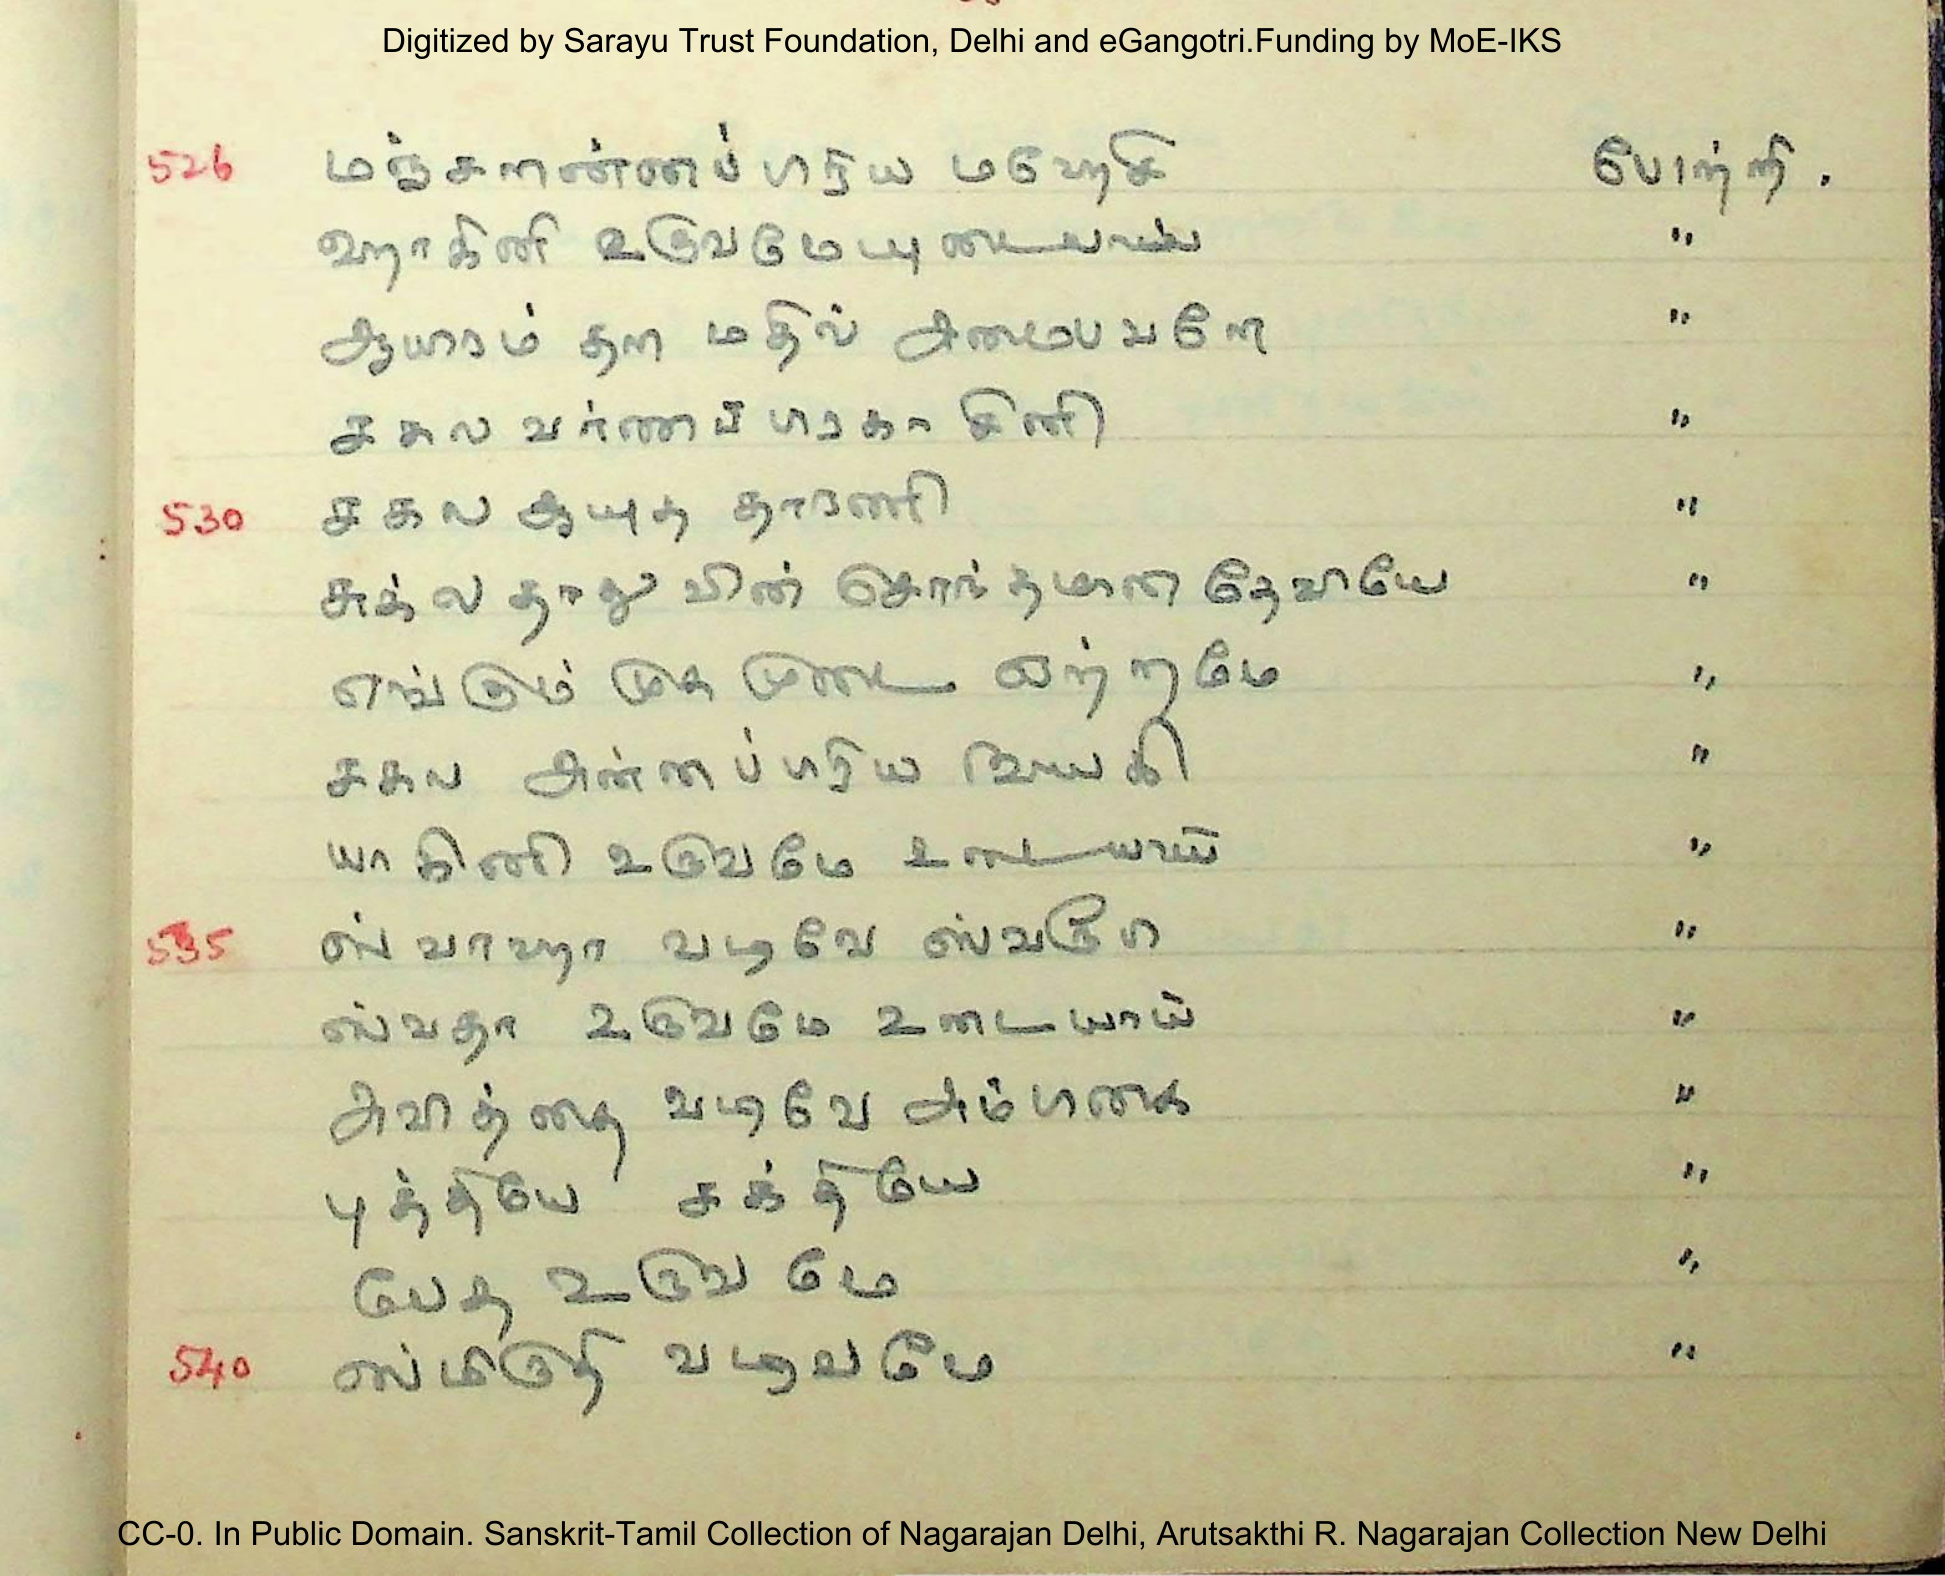 Digitized by Sarayu Trust Foundation, Delhi and eGangotri.Funding by MoE-IKS
526 மஞ்சளண்ணப் பிரிய மஹேசி போற்றி .
ஹாகினி உருவமேயுடையாய் "
ஆயிரம் தள மதில் அமைபவளே "
சகல வர்ணப் பிரகாசினி "
530 சகல ஆயுத தாரணி "
சுக்ல தாதுவின் சொந்தமான தேவியே "
எங்கும் முக முடை ஏற்றமே "
சகல அன்னப் பிரிய நாயகி "
யாகினி உருவமே உடையாய் "
535 ஸ்வாஹா வடிவே ஸ்வரூபி "
ஸ்வதா உருவமே உடையாய் "
அவித்தை வடிவே அம்பிகை "
புத்தியே சக்தியே "
வேத உருவமே "
540 ஸ்மிருதி வடிவமே "
CC-0. In Public Domain. Sanskrit-Tamil Collection of Nagarajan Delhi, Arutsakthi R. Nagarajan Collection New Delhi